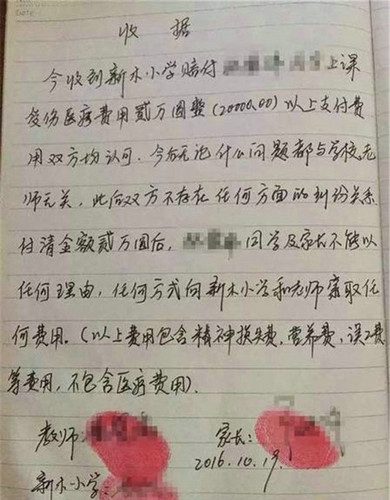 收据
今收到新木小学赔付 上课
受伤医疗费用贰万圆整(20000.00)以上支付费
用双方均认可.今后无论什么问题都与学校老
师无关,此后双方不存在任何方面的纠纷关系
付清金额贰万圆后, 同学及家长不能以
任何理由,任何方式向新木小学和老师索取任
何费用.(以上费用包含精神损失费,营养费,误工费
等费用,不包含医疗费用).
教师: 家长:
2016.10.19.
新木小学: